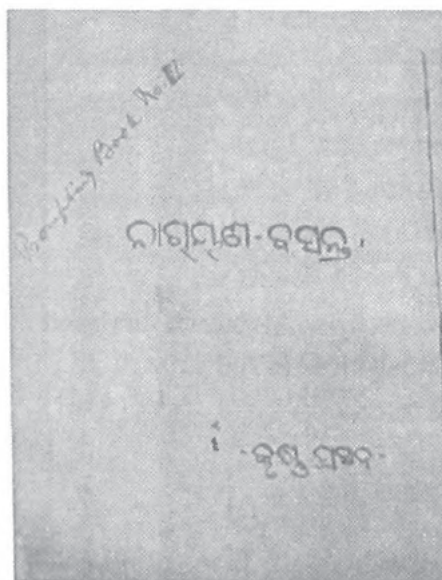 Book No. II
ନାରାୟଣ-ବସନ୍ତ.
-କୃଷ୍ଣ ପ୍ରସାଦ-